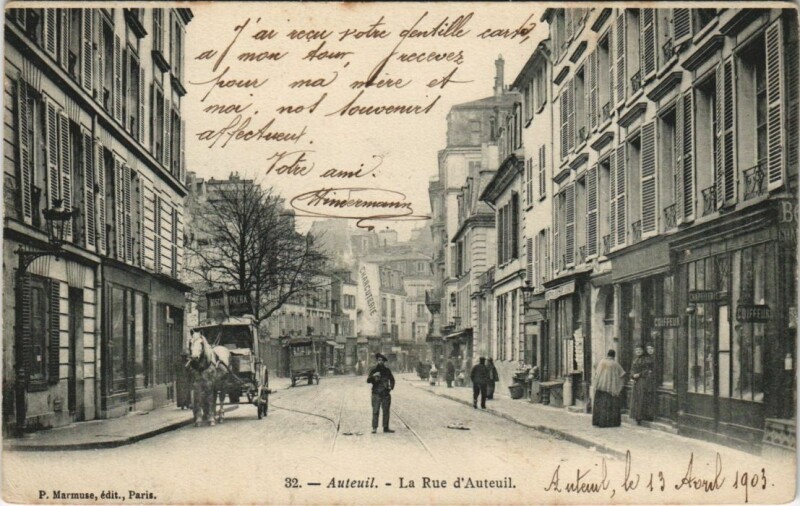 J'ai reçu votre gentille carte,
a mon tour, recevez
pour ma mère et
moi, nos souvenirs
affectueux.
Votre ami.
CHARCUTERIE
COIFFEUR
COIFFEUR
32. — Auteuil. - La Rue d'Auteuil.
Auteuil, le 13 Avril 1903.
P. Marmuse, édit., Paris.